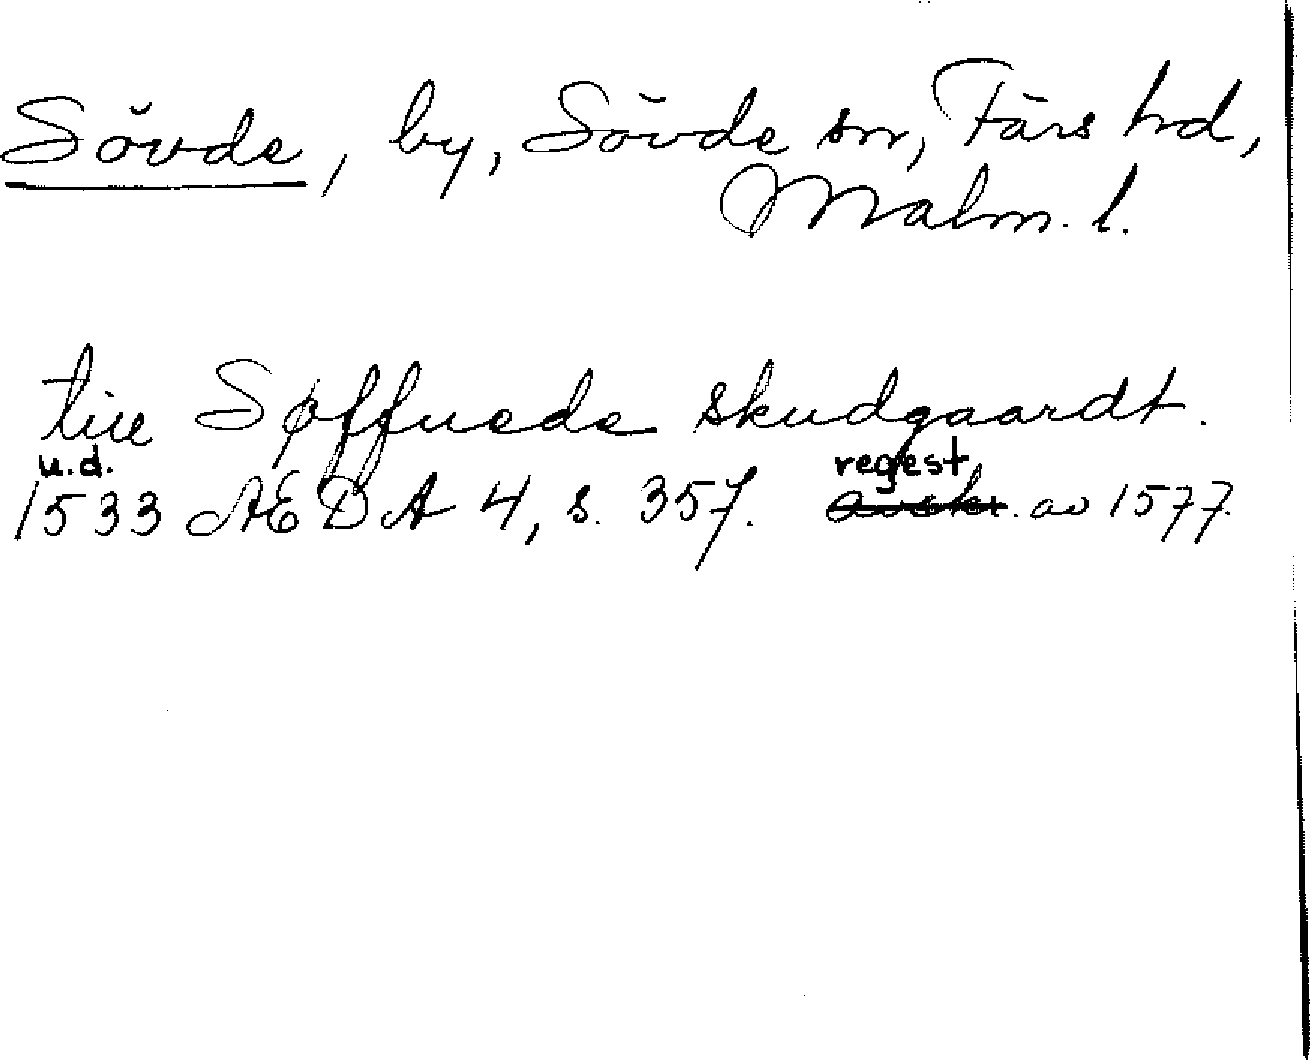 Sövde, by, Sövde sn, Färs hd,
Malm. l.
till Søffuede skudgaardt.
u.d. regest
1533 ÆDA 4, s. 357. avskr. av 1577.